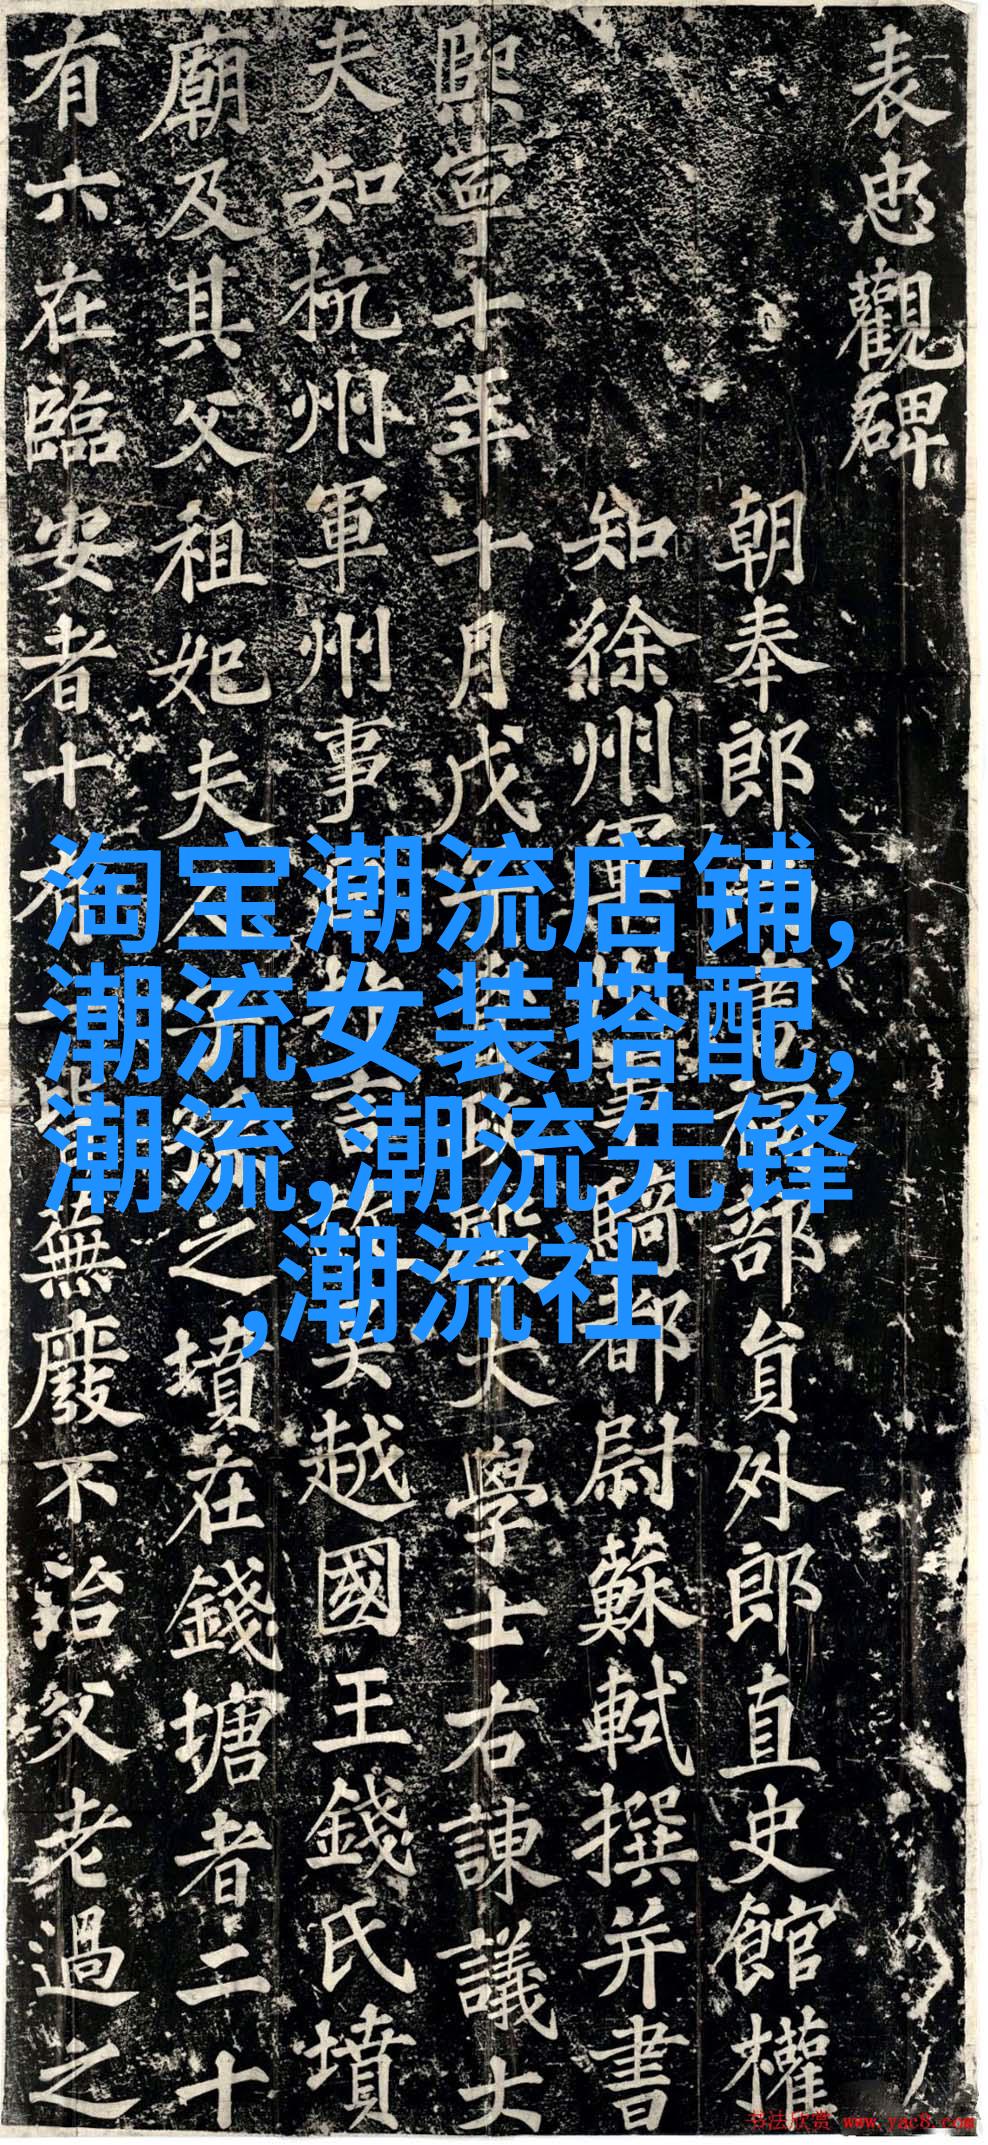 表忠觀碑
朝奉郎尚書祠部員外郎直史館權
知徐州軍州事騎都尉蘇軾撰并書
熙寧十年十月戊子資政殿大學士右諫議大
夫知杭州軍州事臣抃言故吳越國王錢氏墳
廟及其父祖妃夫人子孫之墳在錢塘者二十
有六在臨安者十有一皆蕪廢不治父老過之
淘宝潮流店铺,
潮流女装搭配,
潮流,潮流先锋
,潮流社
书法欣赏 www.yac8.com